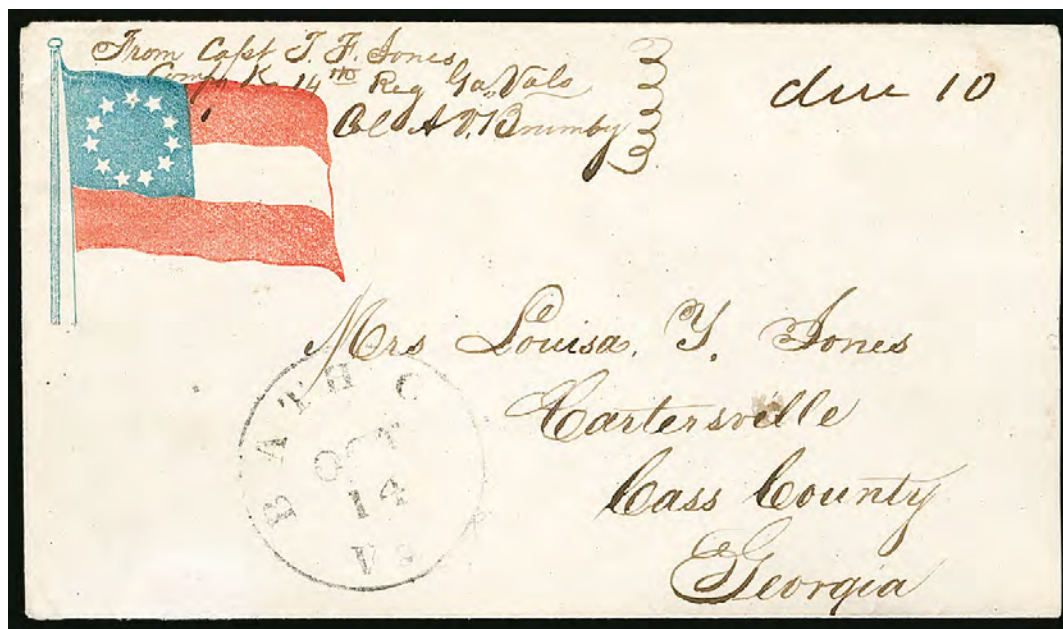 From Capt T. F. Jones
Comp K 14th Reg Ga. Vols
Col A V. Brumby
due 10
Mrs Louisa. Y. Jones
Cartersville
Cass County
Georgia
BATH C
OCT
14
VA